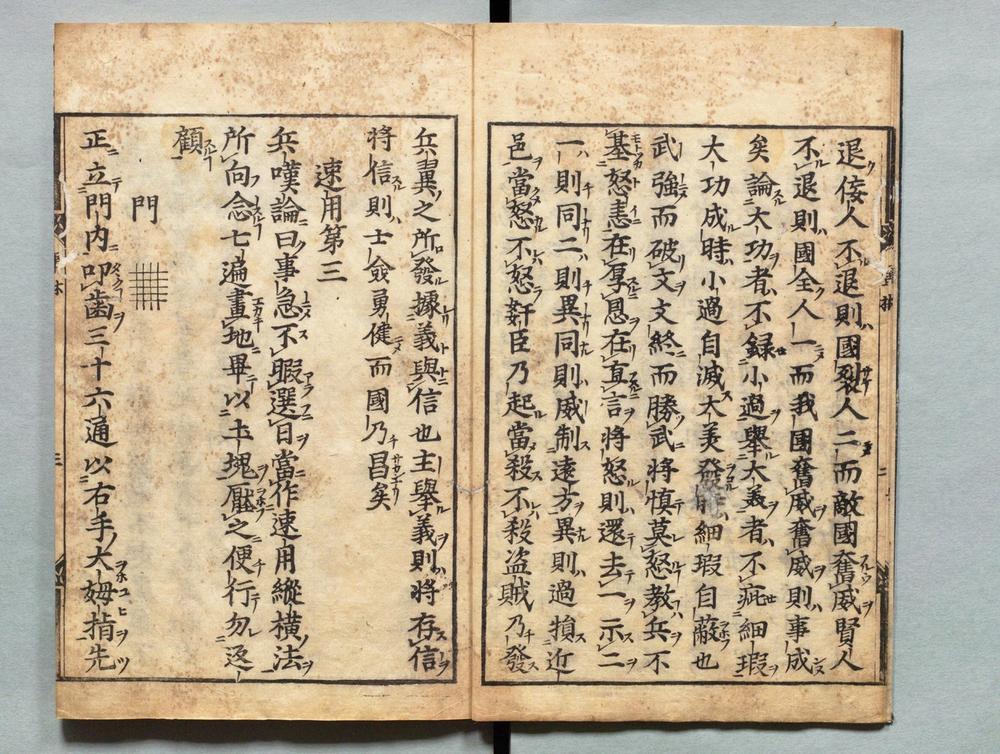 退侫人不退則國裂人二而敵國奮威賢人
不退則國全人一而我國奮威奮威則事成
矣論大功者不録小過舉大美者不疵細瑕
大功成時小過自滅大美發時細瑕自蔽也
武強而破文文終而勝武將慎莫怒教兵不
基怒恚在厚恩在直言將怒則還去一示二
一則同二則異同則威制遠方異則過損近
邑當怒不怒奸臣乃起當殺不殺盗賊乃發
兵翼之所發據義與信也主舉義則將存信
將信則士僉勇健而國乃昌矣
速用第三
兵嘆論曰事急不暇選日當作速用縱橫法
所向念七遍畫地畢以土塊壓之便行勿返
顧
門
正立門内叩齒三十六通以右手大姆指先